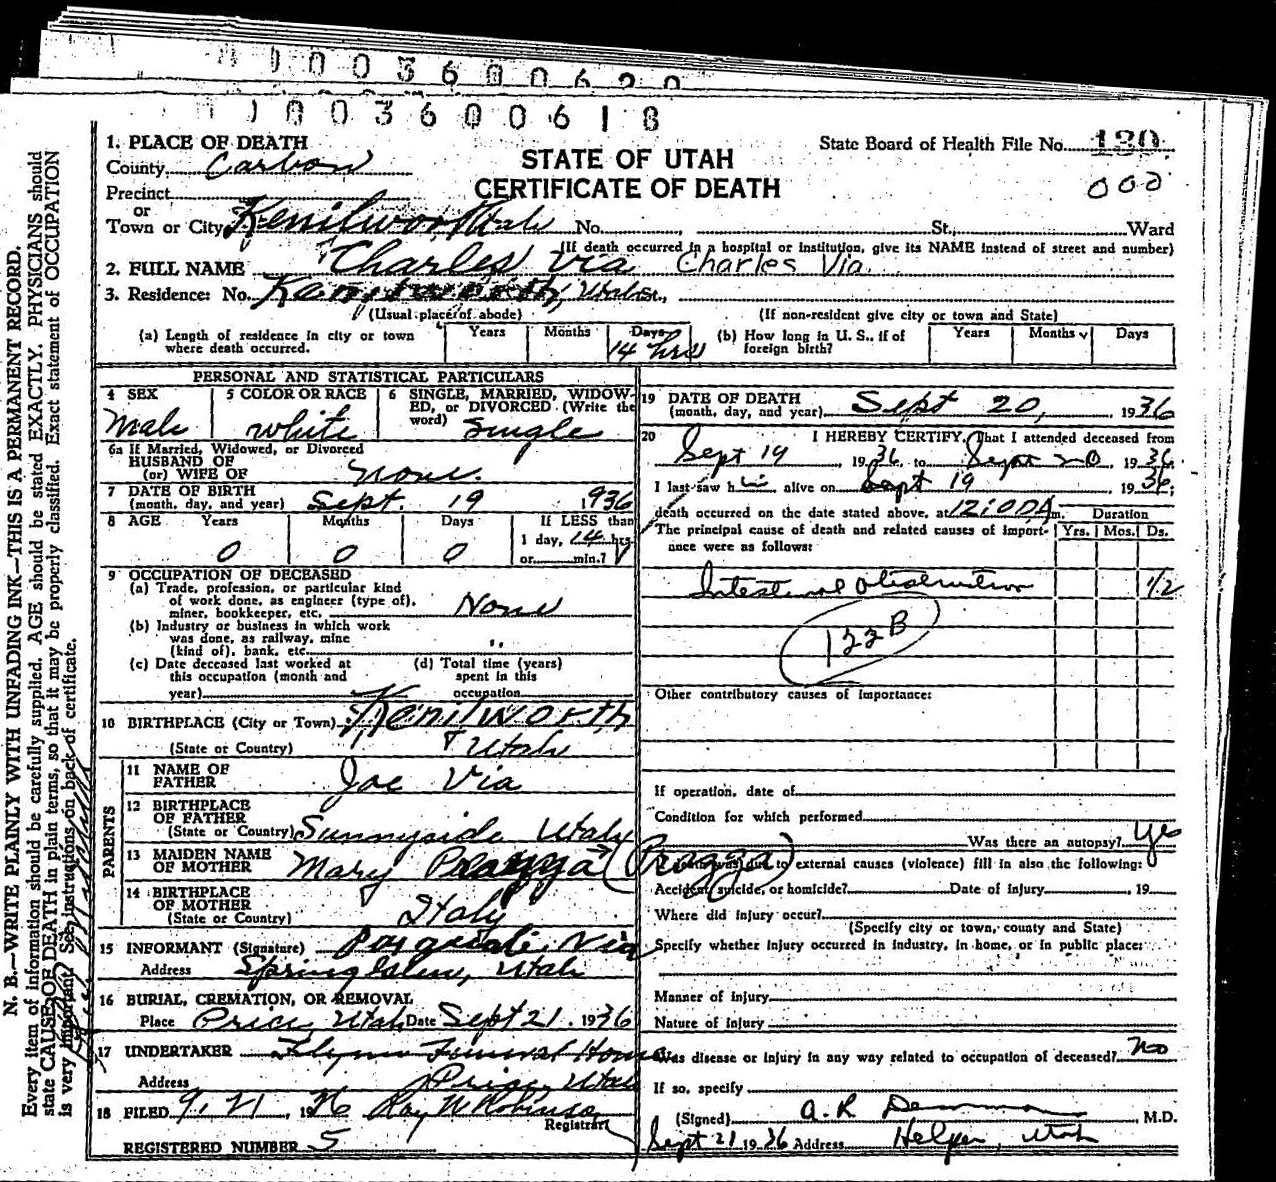 1 0 0 3 6 0 0 6 2 0
1 0 0 3 6 0 0 6 1 8
N. B.—WRITE PLAINLY WITH UNFADING INK—THIS IS A PERMANENT RECORD.
Every item of information should be carefully supplied. AGE should be stated EXACTLY. PHYSICIANS should
state CAUSE OF DEATH in plain terms, so that it may be properly classified. Exact statement of OCCUPATION
is very important. See instructions on back of certificate.
STATE OF UTAH
CERTIFICATE OF DEATH
State Board of Health File No. 130
000
1. PLACE OF DEATH
County Carbon
Precinct
or
Town or City Kenilworth Utah No. St., Ward
(If death occurred in a hospital or institution, give its NAME instead of street and number)
2. FULL NAME Charles Via Charles Via
3. Residence: No. Kenilworth, Utah St.,
(Usual place of abode) (If non-resident give city or town and State)
(a) Length of residence in city or town where death occurred. Years Months Days 14 hrs
(b) How long in U. S., if of foreign birth? Years Months Days
PERSONAL AND STATISTICAL PARTICULARS
4 SEX Male
5 COLOR OR RACE White
6 SINGLE, MARRIED, WIDOWED, or DIVORCED (Write the word) Single
6a If Married, Widowed, or Divorced
HUSBAND OF
(or) WIFE OF None.
7 DATE OF BIRTH
(month, day, and year) Sept. 19 1936
8 AGE Years Months Days If LESS than
0 0 0 1 day, 14 hrs.
or min.?
9 OCCUPATION OF DECEASED
(a) Trade, profession, or particular kind
of work done, as engineer (type of),
miner, bookkeeper, etc. None
(b) Industry or business in which work
was done, as railway, mine
(kind of), bank, etc. "
(c) Date deceased last worked at
this occupation (month and
year)
(d) Total time (years)
spent in this
occupation
10 BIRTHPLACE (City or Town) Kenilworth
(State or Country) Utah
PARENTS
11 NAME OF
FATHER Joe Via
12 BIRTHPLACE
OF FATHER
(State or Country) Sunnyside Utah
13 MAIDEN NAME
OF MOTHER Mary (Prazza)
14 BIRTHPLACE
OF MOTHER
(State or Country) Italy
15 INFORMANT (Signature) Pasquale Via
Address Spring Glen, Utah
16 BURIAL, CREMATION, OR REMOVAL
Place Price, Utah Date Sept 21, 1936
17 UNDERTAKER Flynn Funeral Home
Address Price, Utah
18 FILED 9, 21, 1936 Ray W Robinson
Registrar
REGISTERED NUMBER 5
19 DATE OF DEATH
(month, day, and year) Sept 20, 1936
20 I HEREBY CERTIFY, That I attended deceased from
Sept 19 1936, to Sept 20, 1936
I last saw him alive on Sept 19 1936;
death occurred on the date stated above, at 12:00 A m. Duration
The principal cause of death and related causes of importance were as follows: Yrs. Mos. Ds.
Intestinal Obstruction 1/2
122 B
Other contributory causes of importance:
If operation, date of
Condition for which performed
Was there an autopsy? yes
to external causes (violence) fill in also the following:
Accident, suicide, or homicide? Date of injury , 19
Where did injury occur?
(Specify city or town, county and State)
Specify whether injury occurred in industry, in home, or in public place:
Manner of injury
Nature of injury
Was disease or injury in any way related to occupation of deceased? No
If so, specify
(Signed) A. R. , M.D.
Sept 21 1936 Address Helper, Utah